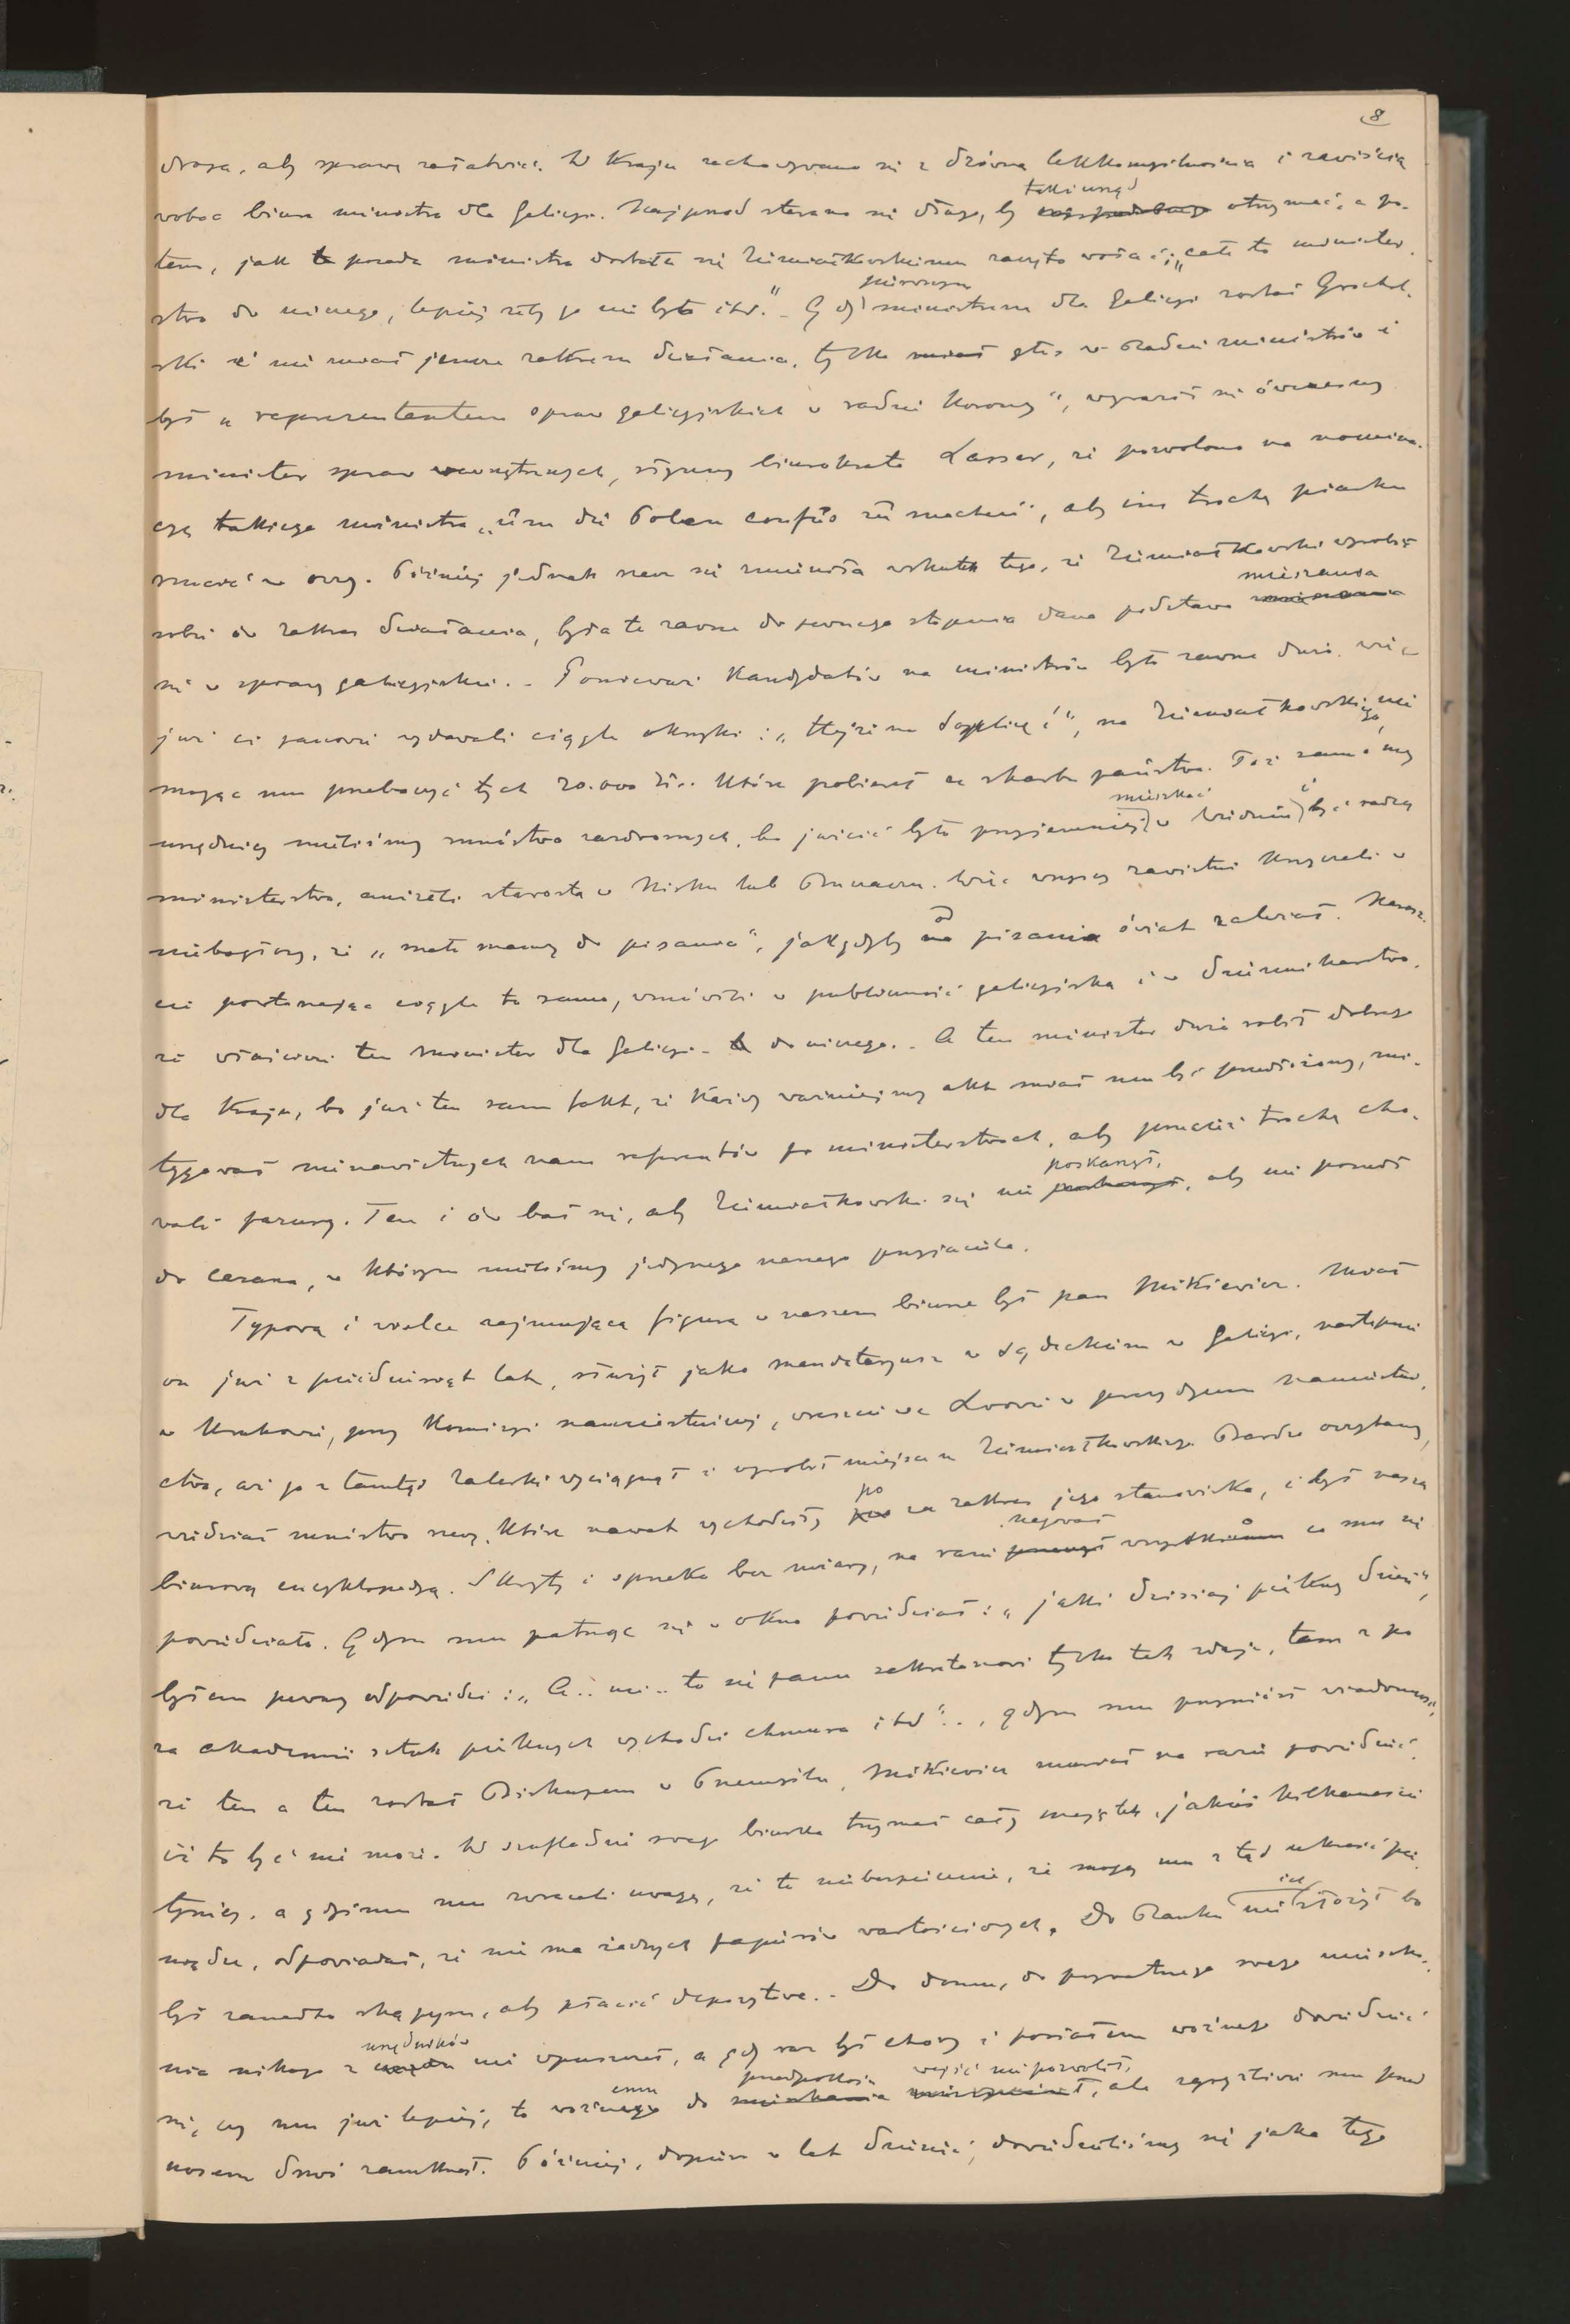 8
droga, aby sprawę załatwić. W Kraju zachowywano się z dziwną lekkomyślnością i zawiścią
wobec biura ministra dla Galicyi. Najprzód starano się długo, by taki urząd otrzymać, a po-
tem, jak posada ministra dostała się Ziemiałkowskiemu zaczęto wołać: „całe to minister-
stwo do niczego, lepiej żeby go nie było itd." - Gdy pierwszym ministrem dla Galicyi został Grochol-
ski i nie miał jeszcze zakresu działania, tylko miał głos w Radzie ministrów i
był „reprezentantem spraw galicyjskich w radzie Korony", wyraził się ówczesny
minister spraw wewnętrznych, słynny biurokrata Lasser, że pozwolono na nomina-
cyę takiego ministra „um die Polen confus zu machen", aby im trochę piasku
rzucić w oczy. Później jednak rzecz się zmieniła wskutek tego, że Ziemiałkowski wyrobił
sobie ów zakres działania, była to zawsze do pewnego stopnia dana podstawa mieszania
się w sprawy galicyjskie. - Ponieważ Kandydatów na ministrów było zawsze dużo, więc
już ci panowie wydawali ciągle okrzyki: „Hejże na Soplicę!", na Ziemiałkowskiego, nie
mogąc mu przebaczyć tych 20.000 złr. które pobierał ze skarbu państwa. Toż samo i my
urzędnicy mieliśmy mnóstwo zazdrosnych, bo jużcić było przyjemniej mieszkać w Wiedniu i być radcą
ministerstwa, aniżeli starostą w Nisku lub Buczaczu. Więc wszyscy zawistni Krzyczeli w
niebogłosy, że „mało mamy do pisania", jakgdyby od pisania świat zależał. Naresz-
cie powtarzając ciągle to samo, wmówili w publiczność galicyjską i w dziennikarstwo,
że właściwie ten minister dla Galicyi - do niczego. - A ten minister dużo robił dobrego
dla Kraju, bo już ten sam fakt, że każdy ważniejszy akt miał mu być przedłożony, mi-
tygował nienawistnych nam referentów po ministerstwach, aby przecież trochę cho-
wali pazury. Ten i ów bał się, aby Ziemiałkowski się nie poskarżył, aby nie poszedł
do Cesarza, w którym mieliśmy jedynego naszego przyjaciela.
Typową i wielce zajmującą figurą w naszem biurze był pan Mitkiewicz. Miał
on już z pięćdziesiąt lat, służył jako mandataryusz w Sądeckiem w Galicyi, następnie
w Krakowie, przy Komisyi namiestniczej, wreszcie we Lwowie w prezydyum Namiestni-
ctwa, aż go z tamtąd Zaleski wyciągnął i wyrobił miejsce u Ziemiałkowskiego. Bardzo oczytany,
wiedział mnóstwo rzeczy, które nawet wychodziły po za zakres jego stanowiska, i był naszą
biurową encyklopedyą. Skryty i sprzeka bez miary, na razie negował wszystko co mu się
powiedziało. Gdym mu patrząc się w okno powiedział: „jaki dzisiaj piękny dzień",
byłem pewny odpowiedzi: „A.. nie.. to się panu sekretarzowi tylko tak zdaje, tam z po
za akademii sztuk pięknych wychodzi chmura itd".., gdym mu przyniósł wiadomość,
że ten a ten został Biskupem w Przemyślu, Mitkiewicz musiał na razie powiedzieć,
iż to być nie może. W szufladzie swego biurka trzymał cały majątek, jakieś kilkanaście
tysięcy, a gdyśmy mu zwracali uwagę, że to niebezpiecznie, że mogą mu z tąd ukraść pie-
niądze, odpowiadał, że nie ma żadnych papierów wartościowych. Do Banku ich nie złożył bo
był zanadto skąpym, aby płacić depozytowe. - Do domu, do prywatnego swego mieszka-
nia nikogo z urzędników nie wpuszczał, a gdy raz był chory i posłałem woźnego dowiedzieć
się, czy mu już lepiej, to woźnemu do przedpokoju wejść nie pozwolił, ale zgryźliwie mu przed
nosem drzwi zamknął. Później, dopiero w lat dziesięć, dowiedzieliśmy się jako tego